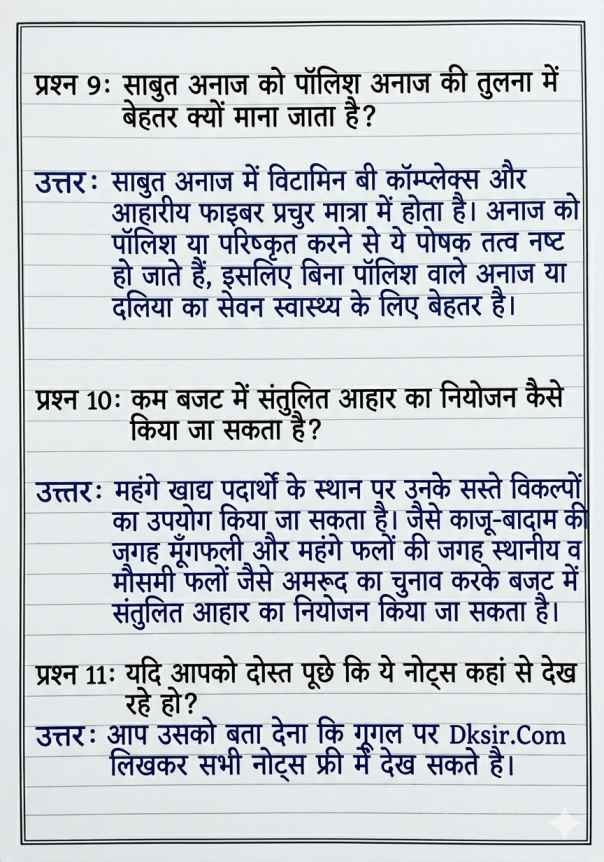 प्रश्न 9: साबुत अनाज को पॉलिश अनाज की तुलना में
बेहतर क्यों माना जाता है?
उत्तर: साबुत अनाज में विटामिन बी कॉम्प्लेक्स और
आहारीय फाइबर प्रचुर मात्रा में होता है। अनाज को
पॉलिश या परिष्कृत करने से ये पोषक तत्व नष्ट
हो जाते हैं, इसलिए बिना पॉलिश वाले अनाज या
दलिया का सेवन स्वास्थ्य के लिए बेहतर है।
प्रश्न 10: कम बजट में संतुलित आहार का नियोजन कैसे
किया जा सकता है?
उत्तर: महंगे खाद्य पदार्थों के स्थान पर उनके सस्ते विकल्पों
का उपयोग किया जा सकता है। जैसे काजू-बादाम की
जगह मूँगफली और महंगे फलों की जगह स्थानीय व
मौसमी फलों जैसे अमरूद का चुनाव करके बजट में
संतुलित आहार का नियोजन किया जा सकता है।
प्रश्न 11: यदि आपको दोस्त पूछे कि ये नोट्स कहां से देख
रहे हो?
उत्तर: आप उसको बता देना कि गूगल पर Dksir.Com
लिखकर सभी नोट्स फ्री में देख सकते है।